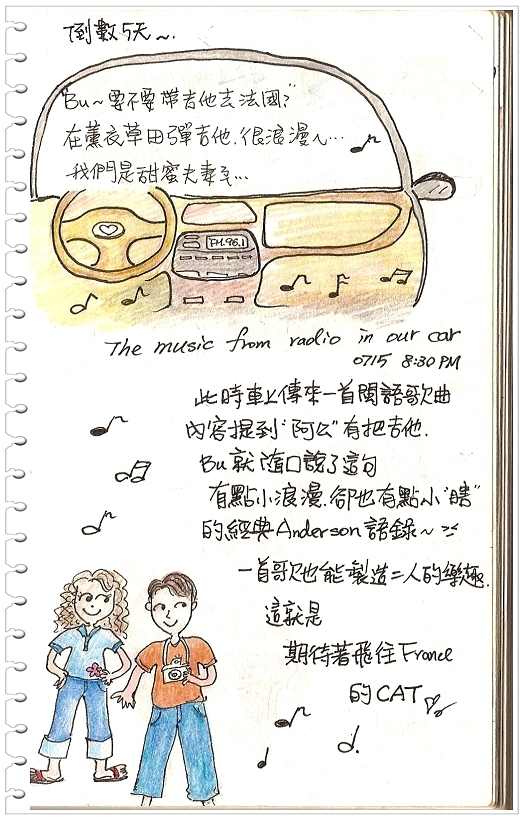 倒數5天~.
"Bu~要不要帶吉他去法國?"
在薰衣草田彈吉他.很浪漫ㄟ...
我們是甜蜜夫妻ㄟ...
FM.96.1
The music from radio in our car
07/5 8:30 PM
此時車上傳來一首閩語歌曲
內容提到"阿公"有把吉他.
Bu就隨口說了這句
有點小浪漫.卻也有點小"瞎"
的經典Anderson語錄~ ><
一首歌也能製造二人的樂趣.
這就是
期待著飛往France
的CAT